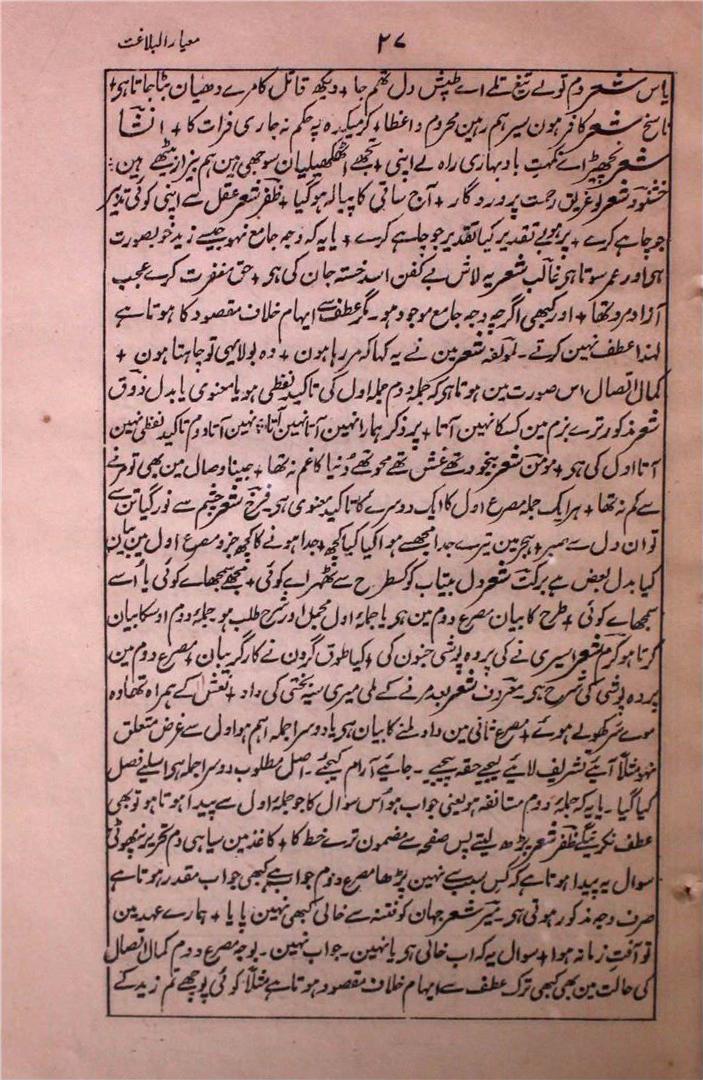 ۲۷ معیار البلاغت
یاس شعر دم تو لے تیغ تلے اے طپش دل تھم جا + دیکھ قاتل کا مرے دھیان بٹا جاتا ہی +
ناسخ شعر کافر ہون سیر ہم رہین محروم واعظا + کر میکدہ پہ حکم نہ جاری فرات کا + انشا
شعر نچھیڑ اے نکہت باد بہاری راہ لے اپنی + تجھے اٹھکھیلیان سوجھی ہین ہم بیزار بیٹھے ہین ::
خشنود شعر لو غریق رحمت پروردگار + آج ساقی کا پیالہ ہوگیا + ظفر شعر عقل سے اپنی کوئی تدبیر
جو چاہے کرے + پر ہو بے تقدیر کیا تقدیر جو چاہے کرے + یا یہ کہ وجہ جامع نہو جیسے زید خوبصورت
ہی اور عمر سوتا ہی غالب شعر یہ لاش بے کفن اسد خستہ جان کی ہی + حق مغفرت کرے عجب
آزاد مرد تھا + اور کبھی اگرچہ وجہ جامع موجود ہو ۔ مگر عطف سے ایہام خلاف مقصود کا ہوتا ہے
لہذا عطف نہین کرتے ۔ لمولفہ شعر مین نے یہ کہا کہ مر رہا ہون + وہ بولا یہی تو چاہتا ہون +
کمال اتصال اس صورت مین ہوتا ہی کہ جملہ دوم جملہ اول کی تاکید لفظی ہو یا معنوی یا بدل ذوق
شعر مذکور ترے بزم مین کسکا نہین آتا + پر ذکر ہمارا نہین آتا نہین آتا :: نہین آتا دوم تاکید لفظی نہین
آتا اول کی ہی + مومن شعر بیخود تھے غش تھے محو تھے دنیا کا غم نہ تھا + جینا وصال مین بھی تو مرنے
سے کم نہ تھا + ہر ایک جملہ مصرع اول کا ایک دوسرے کا تاکید معنوی ہی فرخ شعر چشم سے نور گیا تن سے
توان دل سے صبر + ہجر مین تیرے جدا مجھسے ہوا کیا کیا کچھ + جدا ہونے کا کچھ جزو مصرع اول مین بیان
کیا بدل بعض ہے برکت شعر دل بیتاب کو کسطرح سے ٹھہراے کوئی + مجھے سمجھاے کوئی یا اُسے
سمجھاے کوئی + طرح کا بیان مصرع دوم مین ہی یا جملہ اول مجمل اور شرح طلب ہو جملۂ دوم اوسکا بیان
کرتا ہو کرم شعر اسیری نے کی پردہ پوشی جنون کی + کیا طوق گردن نے کار گریبان + مصرع دوم مین
پردہ پوشی کی شرح ہی ۔ معروف شعر بعد مرنے کے ملی میری سیہ بختی کی داد + نعش کے ہمراہ تھا وہ
موے سر کھولے ہوئے + مصرع ثانی مین داد ملنے کا بیان ہی یا دوسرا جملہ اہم ہو اول سے غرض متعلق
نہو مثلاً آئیے تشریف لائیے لیجے حقہ پیجیے ۔ جایئے آرام کیجئے ۔ اصل مطلوب دوسرا جملہ ہی اسلیے فصل
کیا گیا ۔ یا یہ کہ جملۂ دوم مستانفہ ہو یعنی جواب ہو اُس سوال کا جو جملۂ اول سے پیدا ہوتا ہو تو بھی
عطف نکرینگے ظفر شعر پڑھ لیتے پس صفحہ سے مضمون ترے خط کا + کاغذ مین سیاہی دم تحریر نپھوٹی
سوال یہ پیدا ہوتا ہے کہ کس سبب سے نہین پڑھا مصرع دوم جواب ہے کبھی جواب مقدر ہوتا ہے
صرف وجہ مذکور ہوتی ہی ۔ میر شعر جہان کو فتنہ سے خالی کبھی نہین پایا + ہمارے عہد مین
تو آفت زمانہ ہوا + سوال یہ کہ اب خالی ہی یا نہین ۔ جواب نہین ۔ بوجہ مصرع دوم کمال اتصال
کی حالت مین بھی کبھی ترک عطف سے ایہام خلاف مقصود ہوتا ہے مثلاً کوئی پوچھے تم زید کے